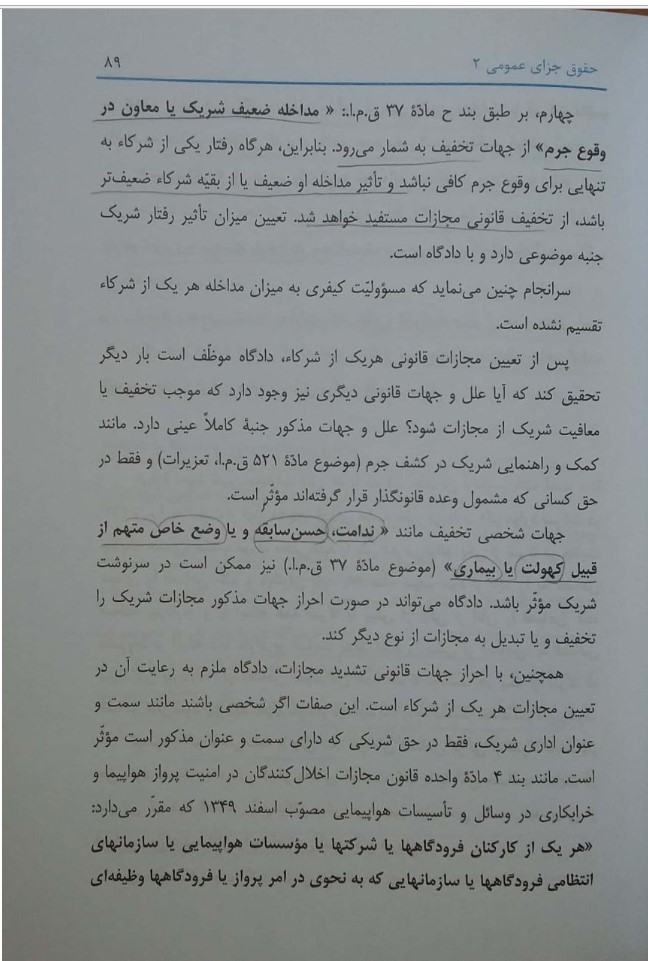 حقوق جزای عمومی ۲
۸۹
چهارم، بر طبق بند ح مادّهٔ ۳۷ ق.م.ا.: « مداخله ضعیف شریک یا معاون در
وقوع جرم» از جهات تخفیف به شمار می‌رود. بنابراین، هرگاه رفتار یکی از شرکاء به
تنهایی برای وقوع جرم کافی نباشد و تأثیر مداخله او ضعیف یا از بقیّه شرکاء ضعیف‌تر
باشد، از تخفیف قانونی مجازات مستفید خواهد شد. تعیین میزان تأثیر رفتار شریک
جنبه موضوعی دارد و با دادگاه است.
سرانجام چنین می‌نماید که مسؤولیّت کیفری به میزان مداخله هر یک از شرکاء
تقسیم نشده است.
پس از تعیین مجازات قانونی هریک از شرکاء، دادگاه موظّف است بار دیگر
تحقیق کند که آیا علل و جهات قانونی دیگری نیز وجود دارد که موجب تخفیف یا
معافیت شریک از مجازات شود؟ علل و جهات مذکور جنبهٔ کاملاً عینی دارد. مانند
کمک و راهنمایی شریک در کشف جرم (موضوع مادّهٔ ۵۲۱ ق.م.ا، تعزیرات) و فقط در
حق کسانی که مشمول وعده قانونگذار قرار گرفته‌اند مؤثّر است.
جهات شخصی تخفیف مانند « ندامت، حسن‌سابقه و یا وضع خاص متهم از
قبیل کهولت یا بیماری» (موضوع مادّهٔ ۳۷ ق.م.ا.) نیز ممکن است در سرنوشت
شریک مؤثّر باشد. دادگاه می‌تواند در صورت احراز جهات مذکور مجازات شریک را
تخفیف و یا تبدیل به مجازات از نوع دیگر کند.
همچنین، با احراز جهات قانونی تشدید مجازات، دادگاه ملزم به رعایت آن در
تعیین مجازات هر یک از شرکاء است. این صفات اگر شخصی باشند مانند سمت و
عنوان اداری شریک، فقط در حق شریکی که دارای سمت و عنوان مذکور است مؤثّر
است. مانند بند ۴ مادّهٔ واحده قانون مجازات اخلال‌کنندگان در امنیت پرواز هواپیما و
خرابکاری در وسائل و تأسیسات هواپیمایی مصوّب اسفند ۱۳۴۹ که مقرّر می‌دارد:
«هر یک از کارکنان فرودگاهها یا شرکتها یا مؤسسات هواپیمایی یا سازمانهای
انتظامی فرودگاهها یا سازمانهایی که به نحوی در امر پرواز یا فرودگاهها وظیفه‌ای